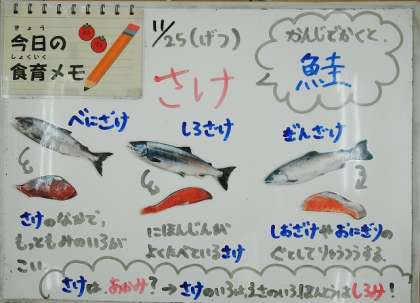 きょう
今日の
しょくいく
食育メモ
11/25(げつ)
さけ
かんじでかくと、
鮭
べにざけ
しろさけ
ぎんざけ
さけのなかで、
もっともみのいろが
こい。
にほんじんが
よくたべているさけ
しおざけやおにぎりの
ぐとして
さけは、あかみ?→さけのいろは、えさのいろ!ほんとうはしろみ!